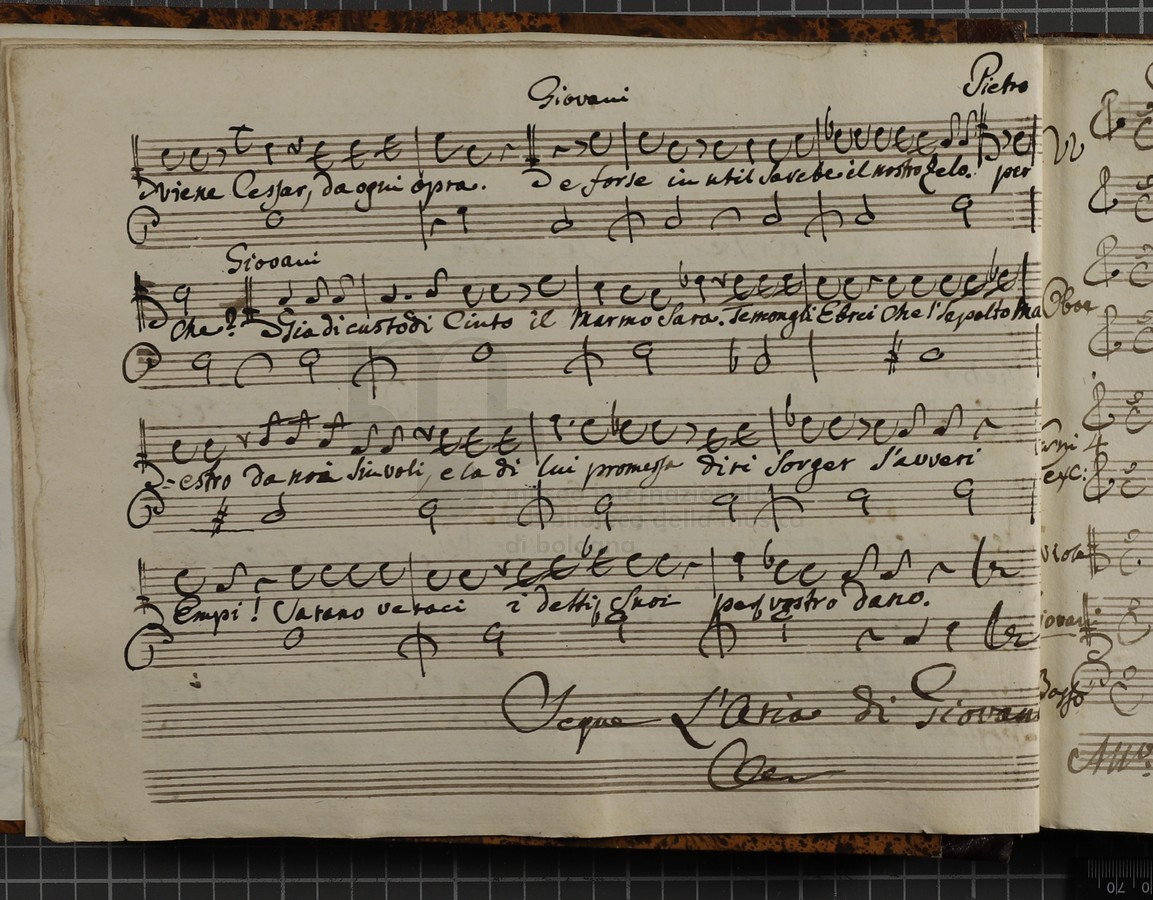 Giovani Pietro
viene Cessar, da ogni opra. e forse in util sarebe il nostro Zelo. per
Giovani
che? Gia di custodi Cinto il Marmo Sara. Temon gli Ebrei Che l'sepolto Ma
estro da noi s'involi, e la di lui promessa di ri sorger s'averi
Empi! Sarano veraci i detti Suoi per vostro dano.
Segue L'Aria di Giovani
VV
Oboe
viola
Giovani
Basso
museo internazionale
e biblioteca della musica
di bologna
70